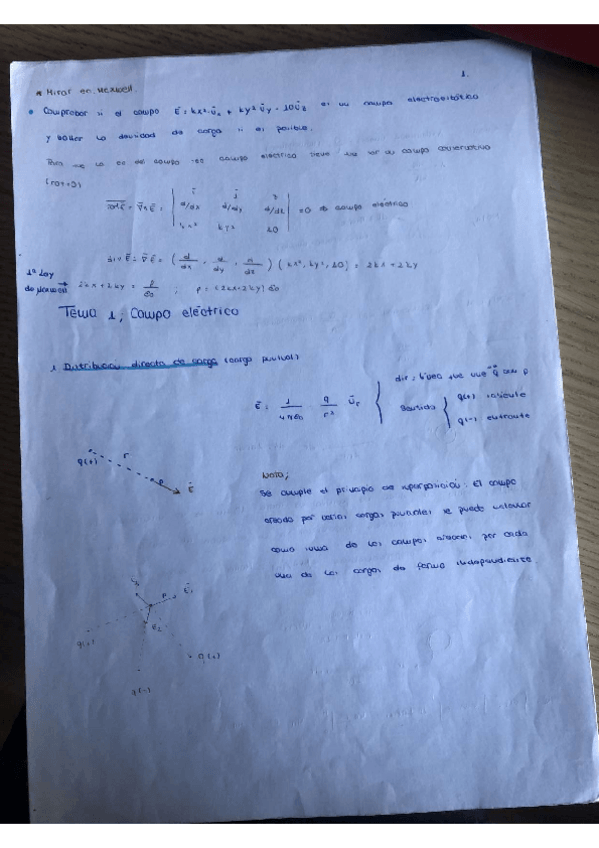 1.
* Mirar ec. Maxwell.
• Comprobar si el campo Ē = kx² ūx + ky² ūy - 10ūz es un campo electrostático
y hallar la densidad de carga si es posible.
campo eléctrico tiene que ser un campo conservativo
(rot=0)
rot Ē = ∇×Ē = | i j z
d/dx d/dy d/dz
kx² ky² 10 | =0 campo eléctrico
div Ē = ∇Ē = (d/dx, d/dy, d/dz)(kx², ky², 10) = 2kx + 2ky
1ª Ley
de Maxwell → 2kx + 2ky = ρ/ε0 ; ρ = (2kx+2ky) ε0
Tema 1; Campo eléctrico
1 Distribucion directa de carga (carga puntual)
Ē = 1/4πε0 q/r² ūr
dir: línea que une q con p
Sentido
q(+) saliente
q(-) entrante
q(+) r P Ē
Nota;
Se cumple el principio de superposición: El campo
creado por varias cargas puntuales se puede calcular
como suma de los campos creados por cada
una de las cargas de forma independiente.
P Ē1
Ē2
q(+)
q(+)
q(-)